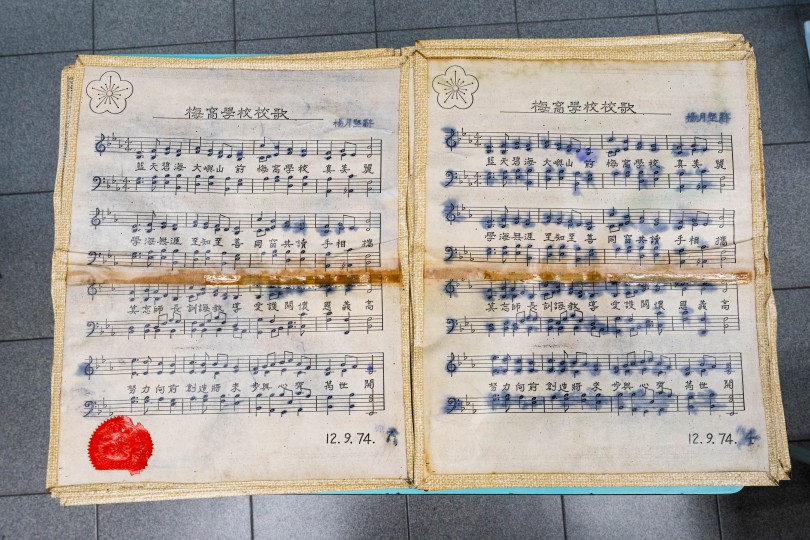 梅窩學校校歌
楊月堅
藍天碧海 大嶼山前 梅窩學校 真美麗
學海無涯 至知至善 同窗共讀 手相攜
莫忘師長訓誨教導 愛護關懷 恩義高
努力向前 創造將來 步與心齊 萬世開
12.9.74.
梅窩學校校歌
楊月堅
藍天碧海 大嶼山前 梅窩學校 真美麗
學海無涯 至知至善 同窗共讀 手相攜
莫忘師長訓誨教導 愛護關懷 恩義高
努力向前 創造將來 步與心齊 萬世開
12.9.74.